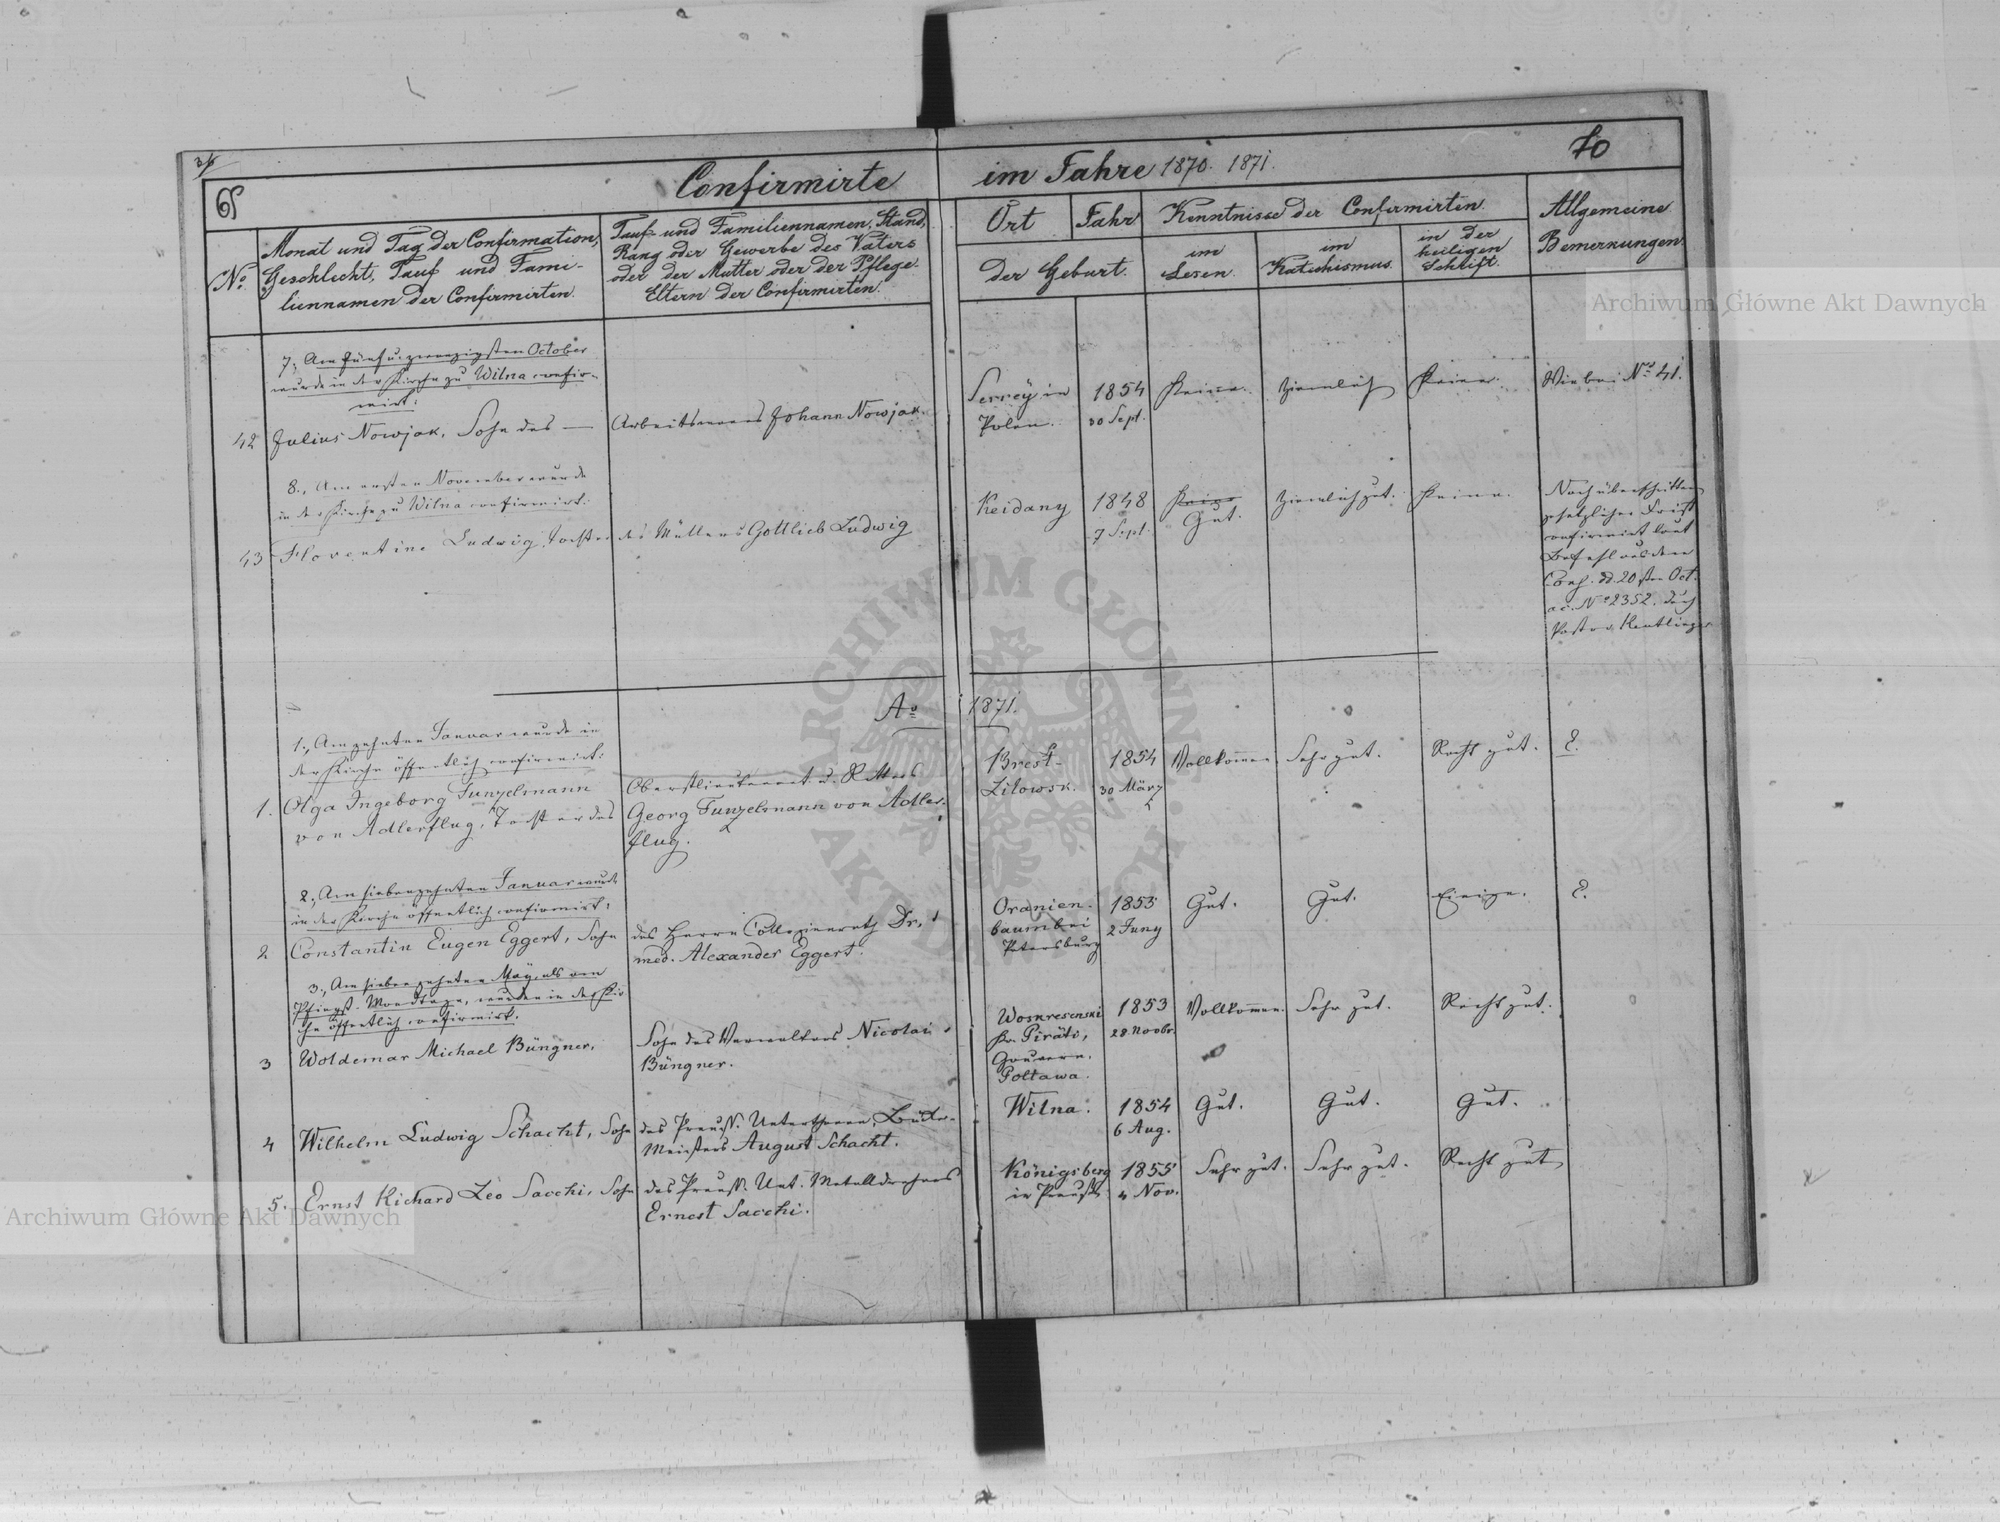 Confirmirte im Jahre 1870. 1871.
No
Monat und Tag der Confirmation,
Geschlecht, Tauf und Fami-
liennamen der Confirmirten.
Tauf- und Familiennamen, Stand,
Rang oder Gewerbe des Vaters
oder der Mutter oder der Pflege-
Eltern der Confirmirten.
Ort
Jahr
der Geburt.
Kenntnisse der Confirmirten.
im
Lesen.
im
Katechismus.
in der
heiligen
Schrift.
Allgemeine
Bemerkungen.
7., Am fünf u. zwanzigsten October
wurde in der Kirche zu Wilna confir-
mirt:
42 Julius Nowjak, Sohn des — Arbeitsmanns Johann Nowjak.
Serrey in
Polen.
1854
30 Sept.
Keine.
Ziemlich
Keine.
Wie bei No 41.
8., Am ersten November wurde
in der Kirche zu Wilna confirmirt:
43 Florentine Ludwig, Tochter des Müllers Gottlieb Ludwig
Keidany
1848
7 Sept.
Keine
Gut.
Ziemlich gut.
Keine.
Nach überschrittener
gesetzlicher Frist
confirmirt laut
Befehl aus dem
Cons. dd. 20sten Oct.
a. c. No 2352. durch
Pastor
Ao 1871.
1., Am zehnten Januar wurde in
der Kirche öffentlich confirmirt:
1. Olga Ingeborg Funzelmann
von Adlerflug, Tochter des
Oberstlieutenant u. Ritters
Georg Funzelmann von Adler-
flug.
Brest-
Litowsk.
1854
30 März
Vollkommen
Sehr gut.
Recht gut.
E.
2., Am siebenzehnten Januar wurde
in der Kirche öffentlich confirmirt:
2 Constantin Eugen Eggert, Sohn
des Herrn Collegienrath Dr.
med. Alexander Eggert.
Oranien-
baum bei
Petersburg
1855
2 Juny
Gut.
Gut.
Einige.
E.
3., Am siebenzehnten May, als am
Pfingst-Montage, wurden in der Kir-
che öffentlich confirmirt:
3 Woldemar Michael Büngner,
Sohn des Verwalters Nicolai
Büngner.
Wosnresenski
Kr. Piräti,
Gouvern.
Poltawa.
1853
28. Novbr.
Vollkommen.
Sehr gut.
Recht gut.
4 Wilhelm Ludwig Schacht, Sohn
des Preuss. Unterthanen,
Meisters August Schacht.
Wilna.
1854
6 Aug.
Gut.
Gut.
Gut.
5. Ernst Richard Leo Sacchi, Sohn
des Preuss. Unt. Metalldrehers
Ernest Sacchi.
Königsberg
in Preuss.
1855
4 Nov.
Sehr gut.
Sehr gut.
Recht gut
Archiwum Główne Akt Dawnych
Archiwum Główne Akt Dawnych